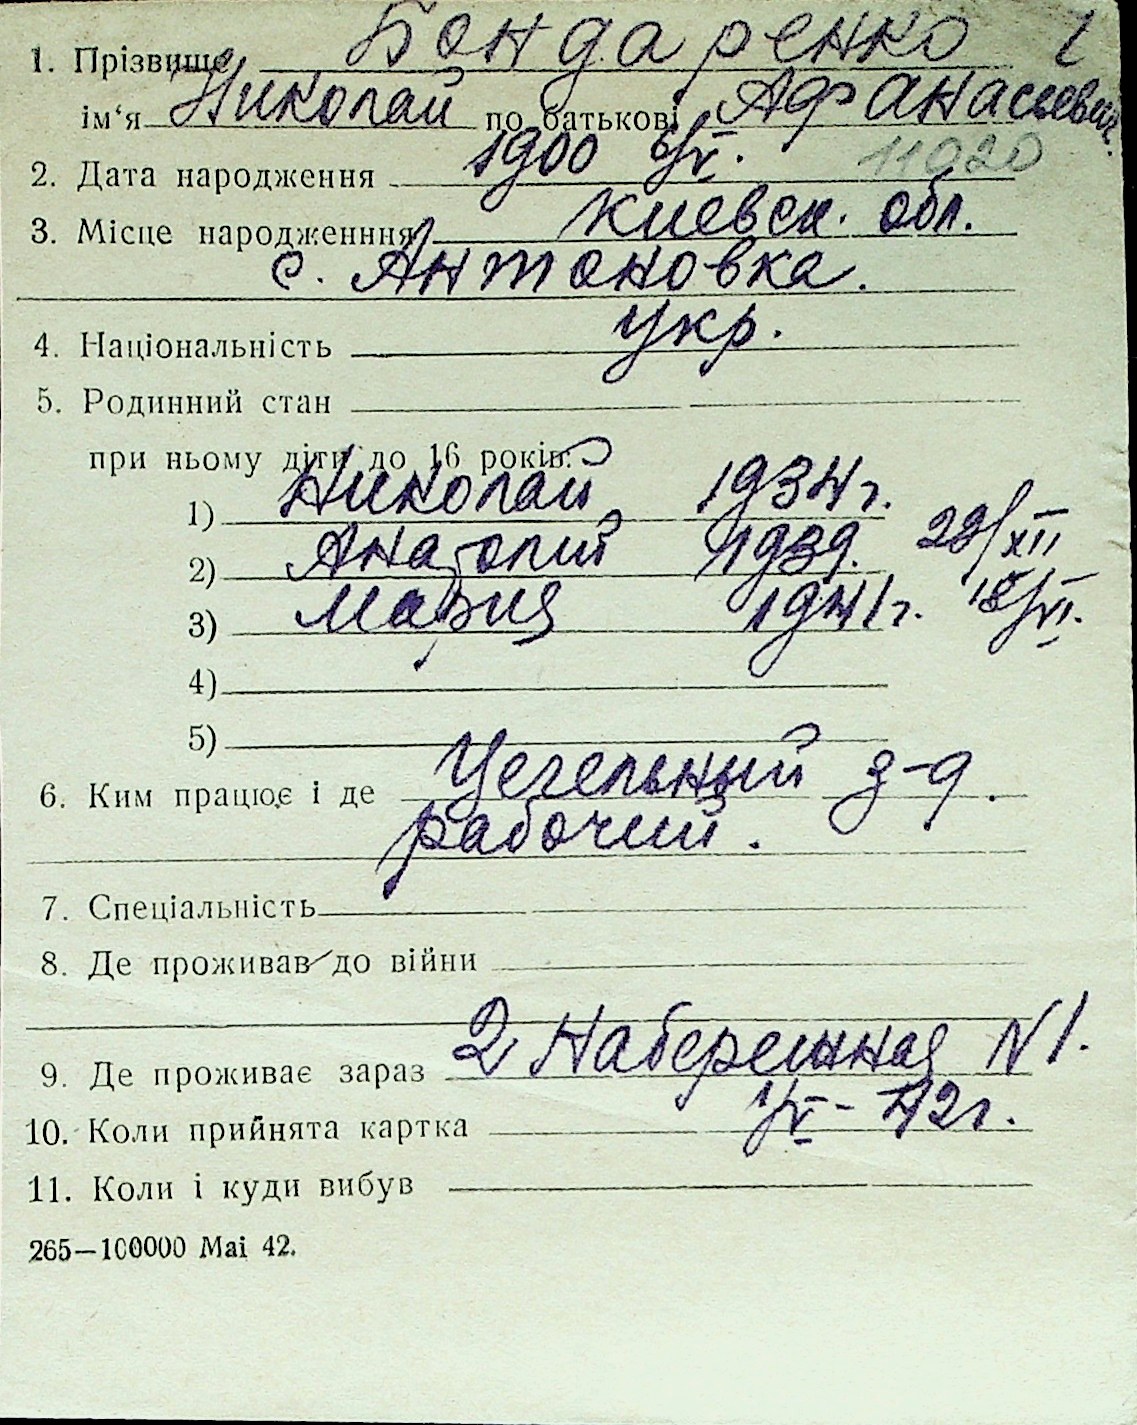 1. Прізвище Бондаренко
ім‘я Николай по батькові Афанасьевич.
2. Дата народження 1900 6/V. 11020
3. Місце народженння Киевск. обл.
с. Антоновка.
4. Національність укр.
5. Родинний стан
при ньому діти до 16 років:
1) Николай 1934 г.
2) Анатолий 1939. 22/XII
3) Мария 1941 г. 18/VI.
4)
5)
6. Ким працює і де Цегельный з-д.
рабочий.
7. Спеціальність
8. Де проживав до війни
9. Де проживає зараз 2 Набережная N 1.
10. Коли прийнята картка 1/V - 42 г.
11. Коли і куди вибув
265—100000 Mai 42.